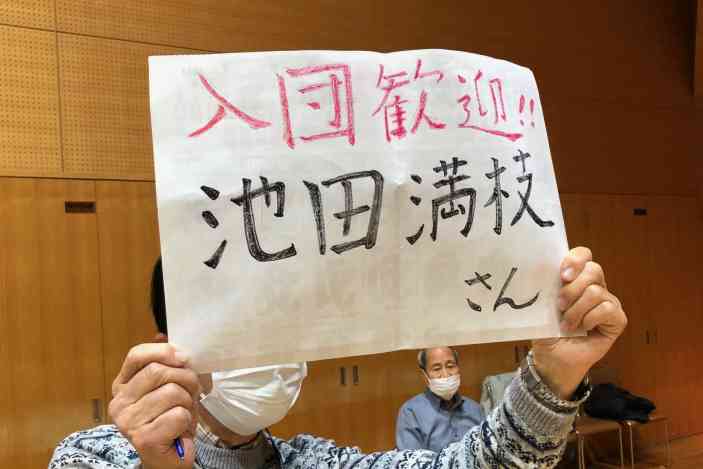 入団歓迎!!
池田満枝
さん